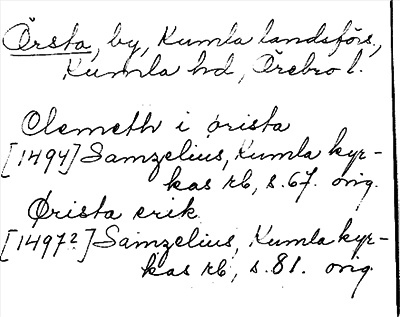 Örsta, by, Kumla landsförs.,
Kumla hd, Örebro l.
Clemeth i ørista
[1494] Samzelius, Kumla kyr-
kas rb, s. 67. orig.
Ørista erik
[1497²] Samzelius, Kumla kyr-
kas rb, s. 81. orig.